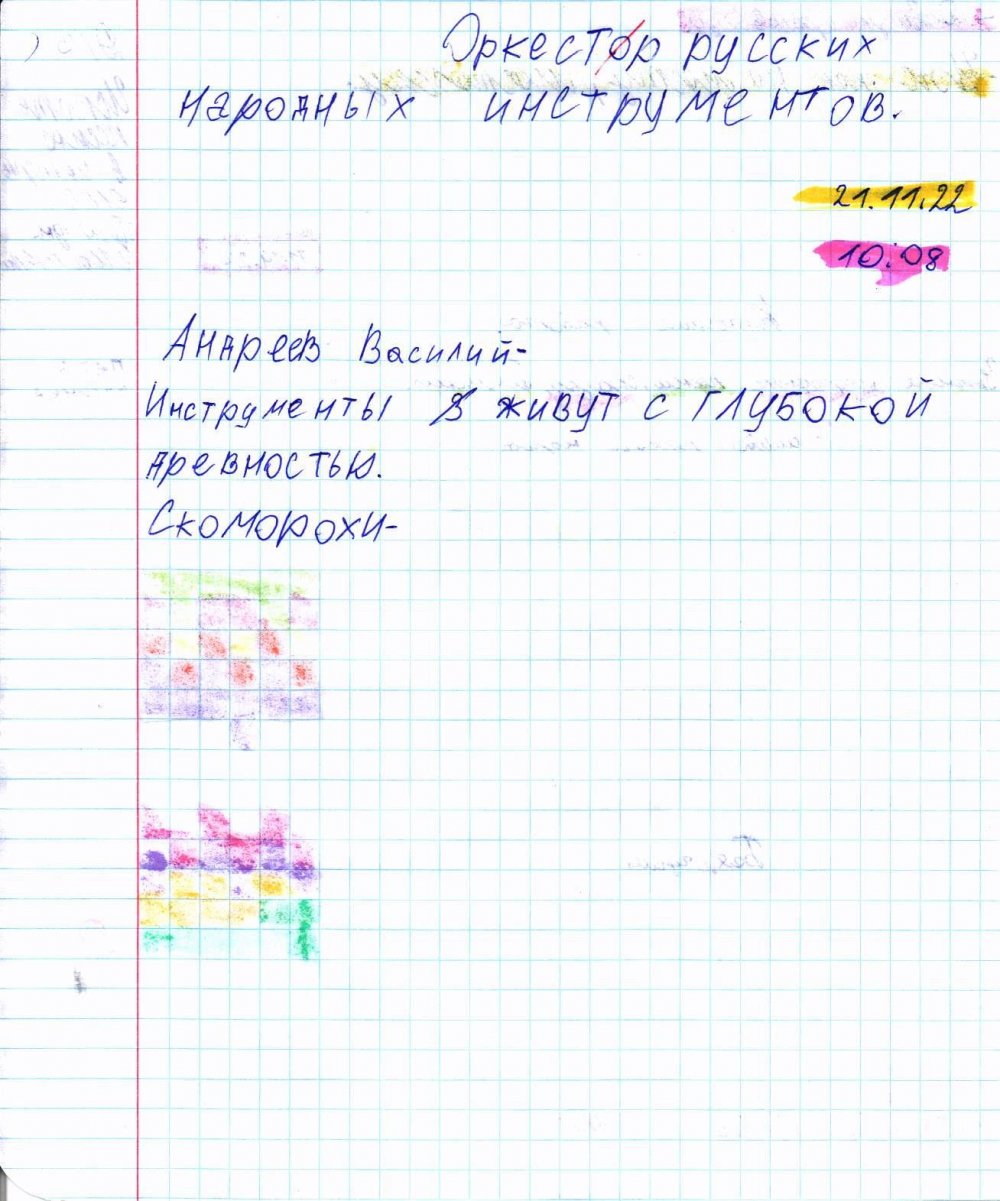 Оркестор русских
народных инструментов.
21.11.22
10:08
Андреев Василий-
Инструменты живут с глубокой
древностью.
Скоморохи-